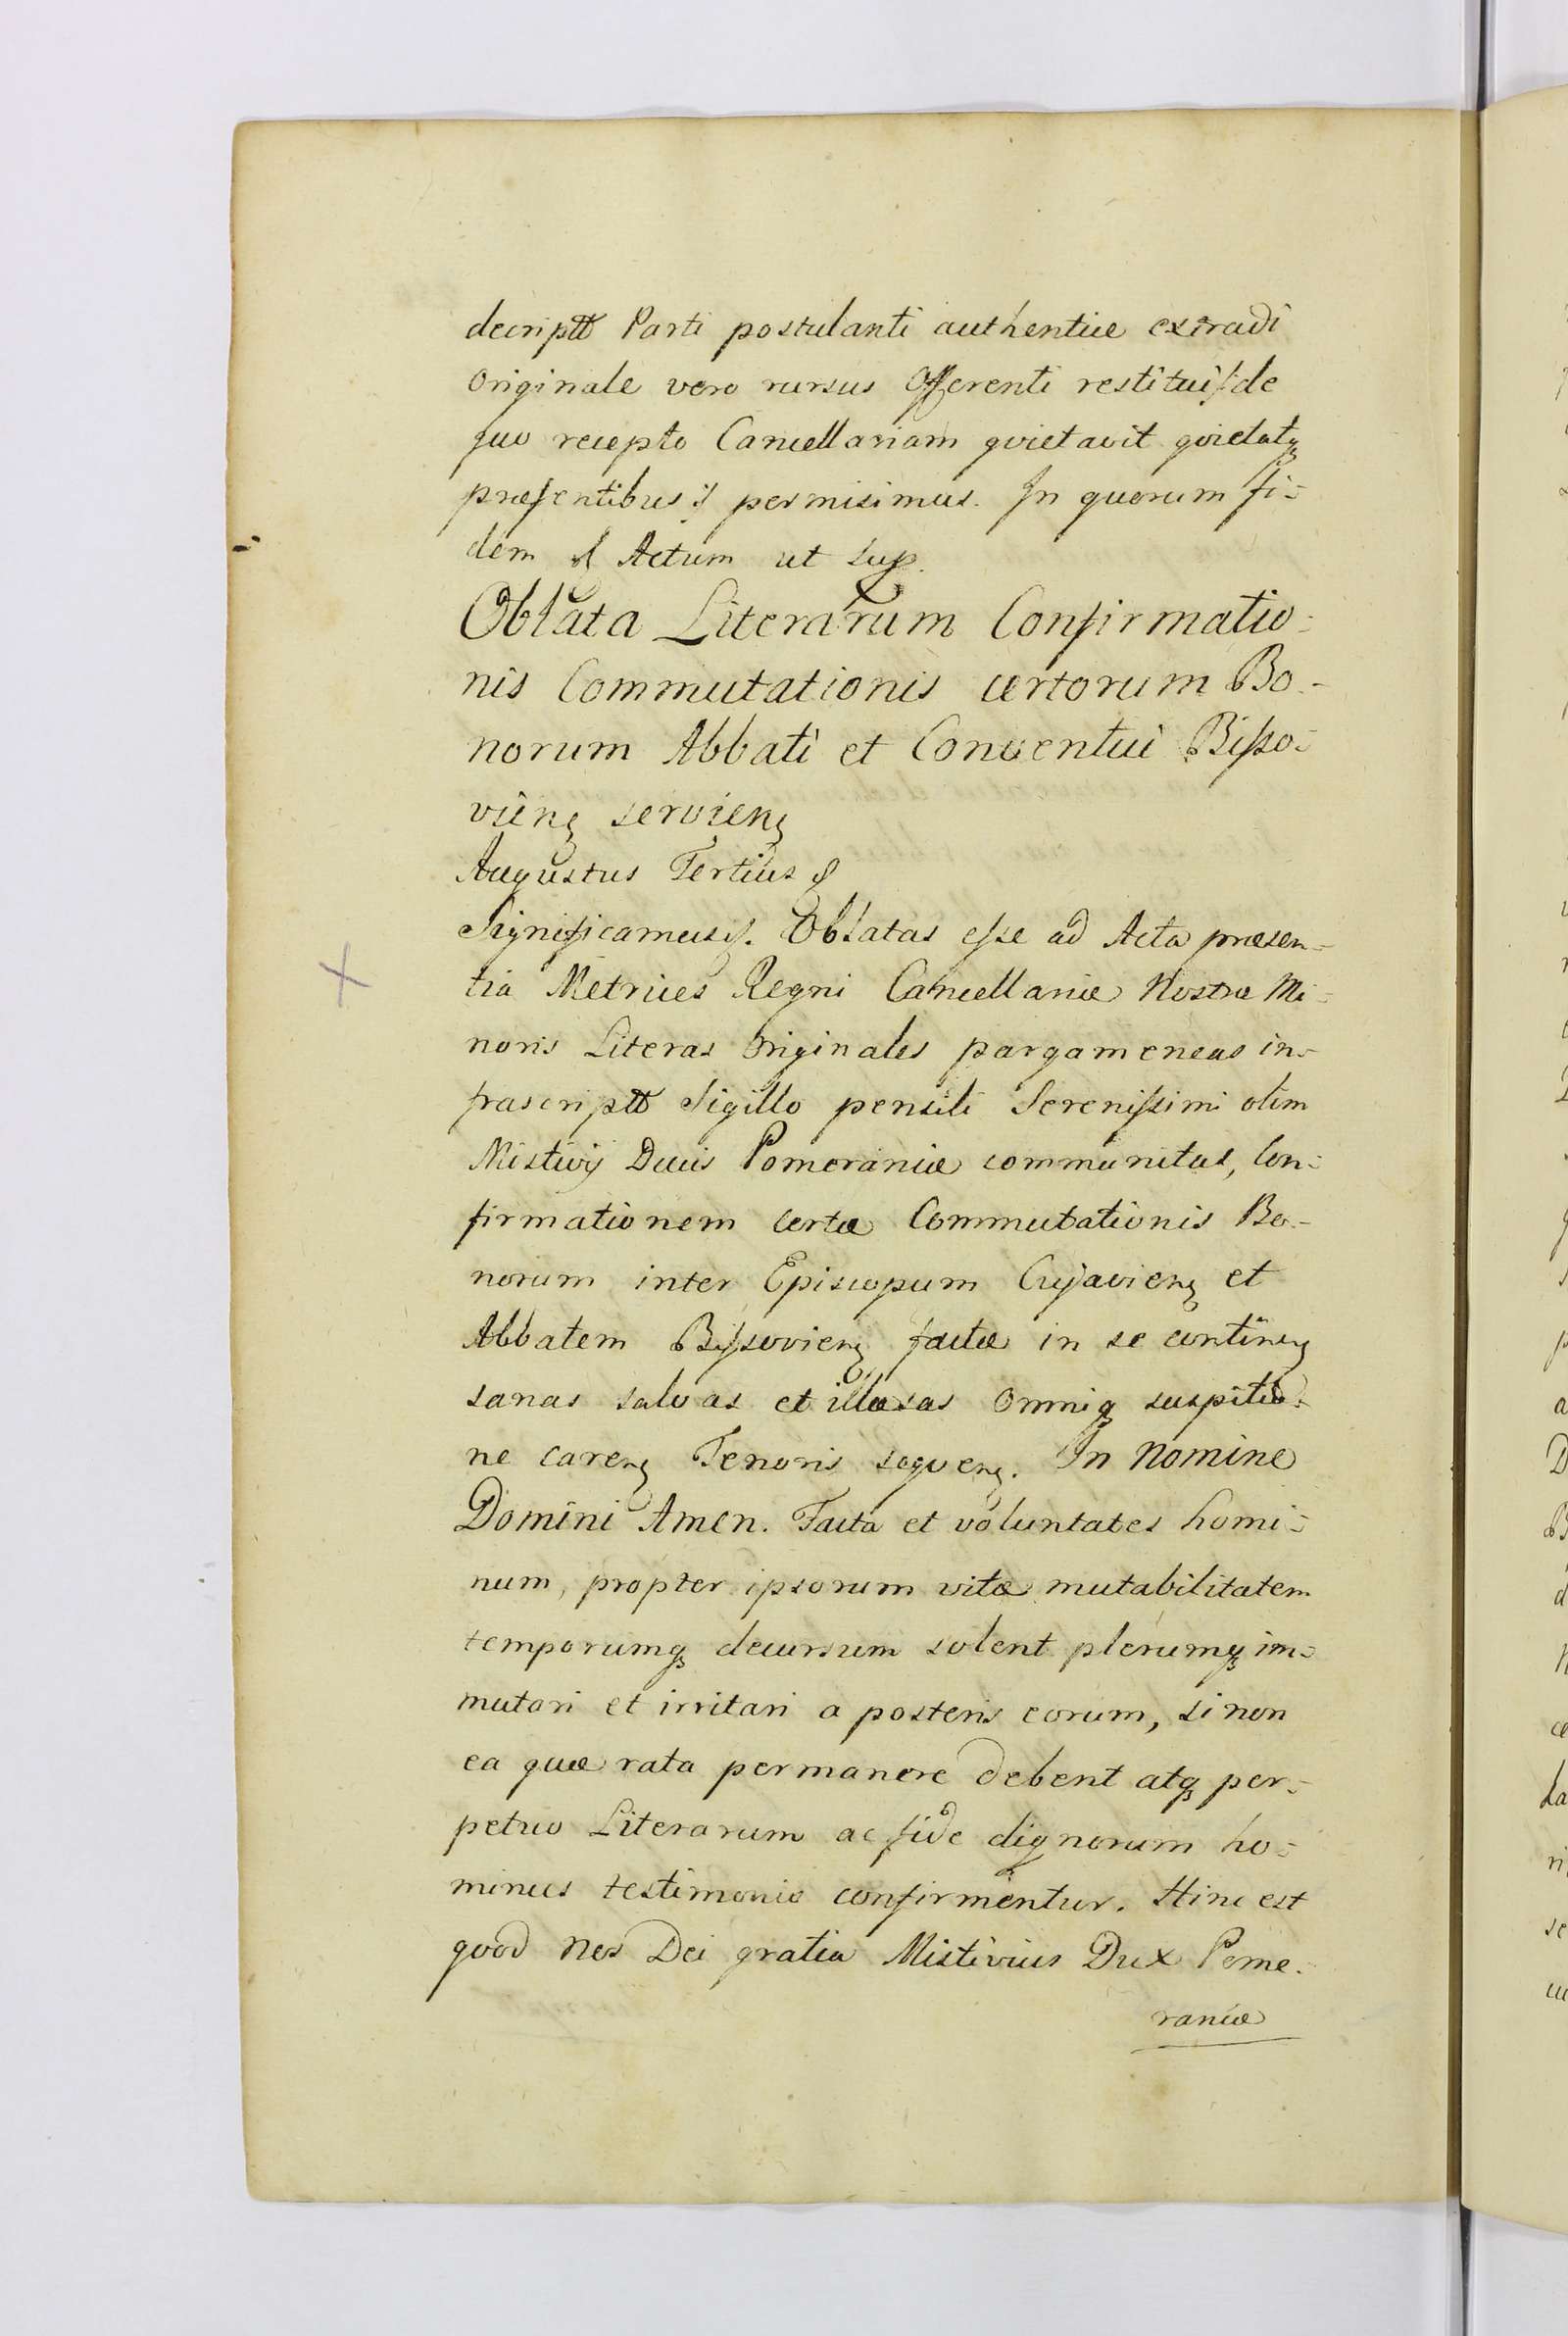 descriptt Parti postulanti authentice extradi
Originale vero rursus Offerenti restitui /: de
quo recepto Cancellariam qvietavit qvietatq3
præsentibus :/ permisimus. In quorum fi-
dem &c Actum ut sup.
Oblata Literarum Confirmatio-
nis Commutationis certorum Bo-
norum Abbati et Conventui Bisso-
vieng servieng
Augustus Tertius &c
Significamus &c. Oblatas esse ad Acta præsen-
tia Metrices Regni Cancellariæ Nostræ Mi-
noris Literas Originales pargameneas in-
frascriptt Sigillo pensili Serenissimi olim
Mistivij Ducis Pomeraniæ communitas, Con-
firmationem certæ Commutationis Bo-
norum inter Episcopum Cujavieng et
Abbatem Byssovieng factæ in se contineng
sanas salvas et illæsas omniq3 suspitio-
ne careng Tenoris seqveng. In Nomine
Domini Amen. Facta et voluntates homi-
num, propter ipsorum vitæ mutabilitatem
temporumq3 decursum solent plerumq3 im-
mutari et irritari a posteris eorum, si non
ea quæ rata permanere debent atq3 per-
petuo Literarum ac fide dignorum ho-
minus testimonio confirmentur. Hinc est
qvod Nos Dei gratia Mistivius Dux Pome-
raniæ